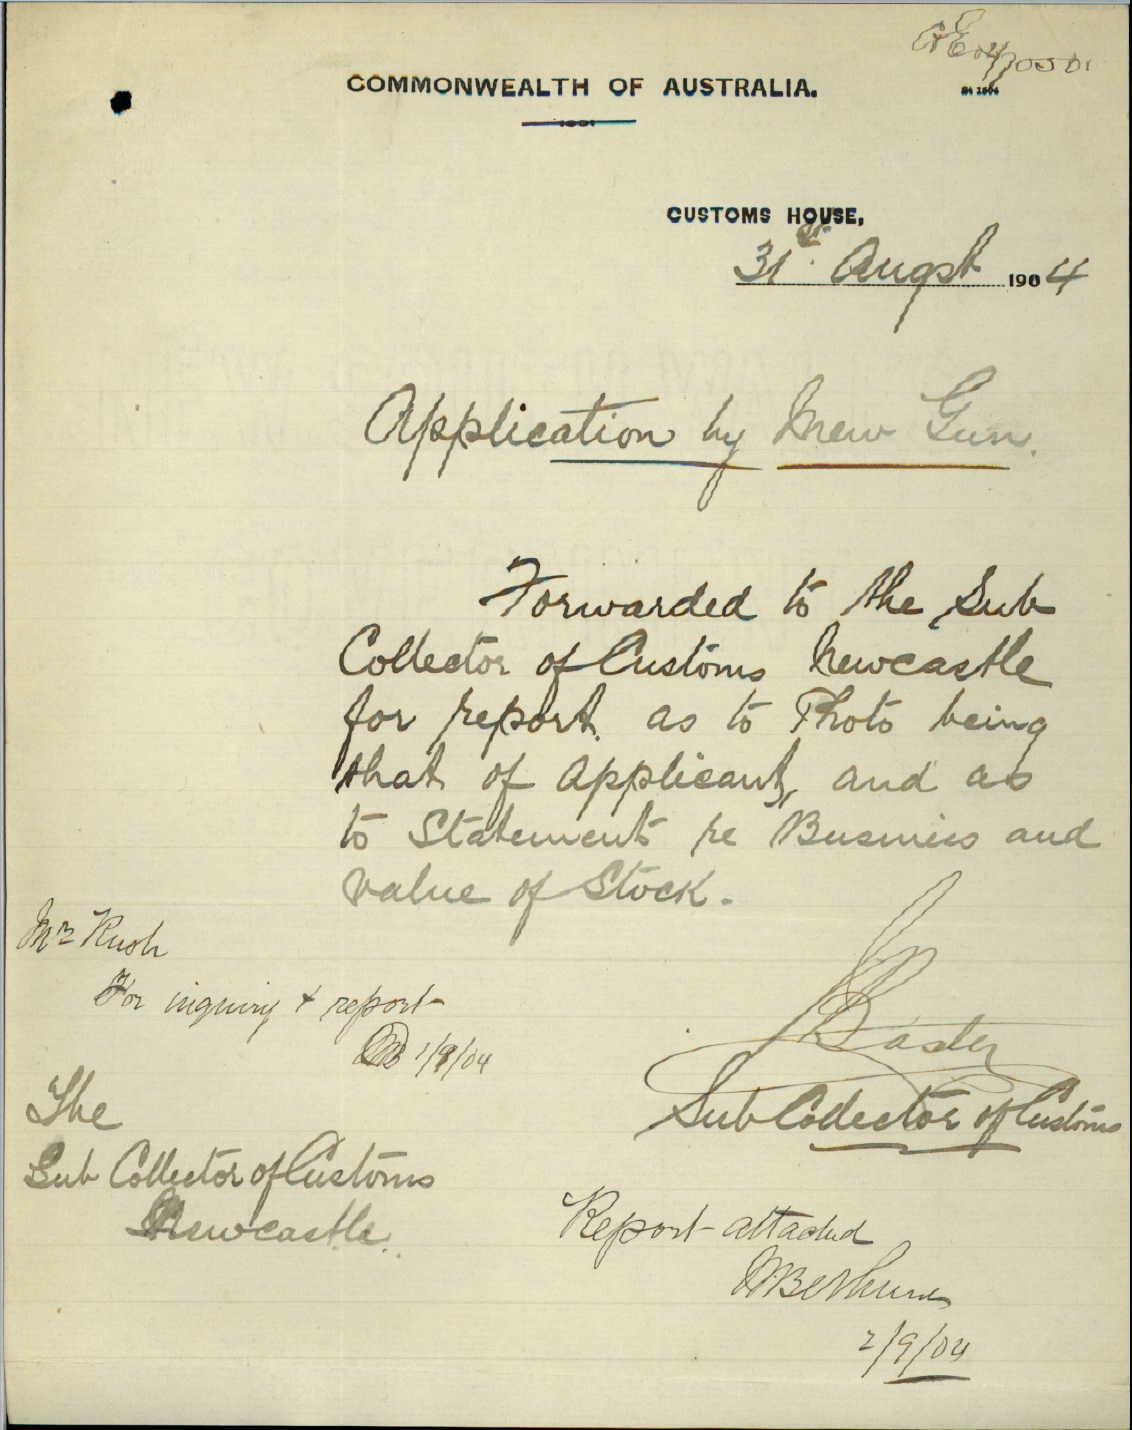 COMMONWEALTH OF AUSTRALIA.
1901
CUSTOMS HOUSE,
31st Augst 1904
Application by Mew Gun.
Forwarded to the Sub
Collector of Customs Newcastle
for report. as to Photo being
that of applicant, and as
to Statement re Business and
value of Stock.
Mr Rush
For inquiry + report
1/9/04
Sub Collector of Customs
The
Sub Collector of Customs
Newcastle.
Report attached
2/9/04